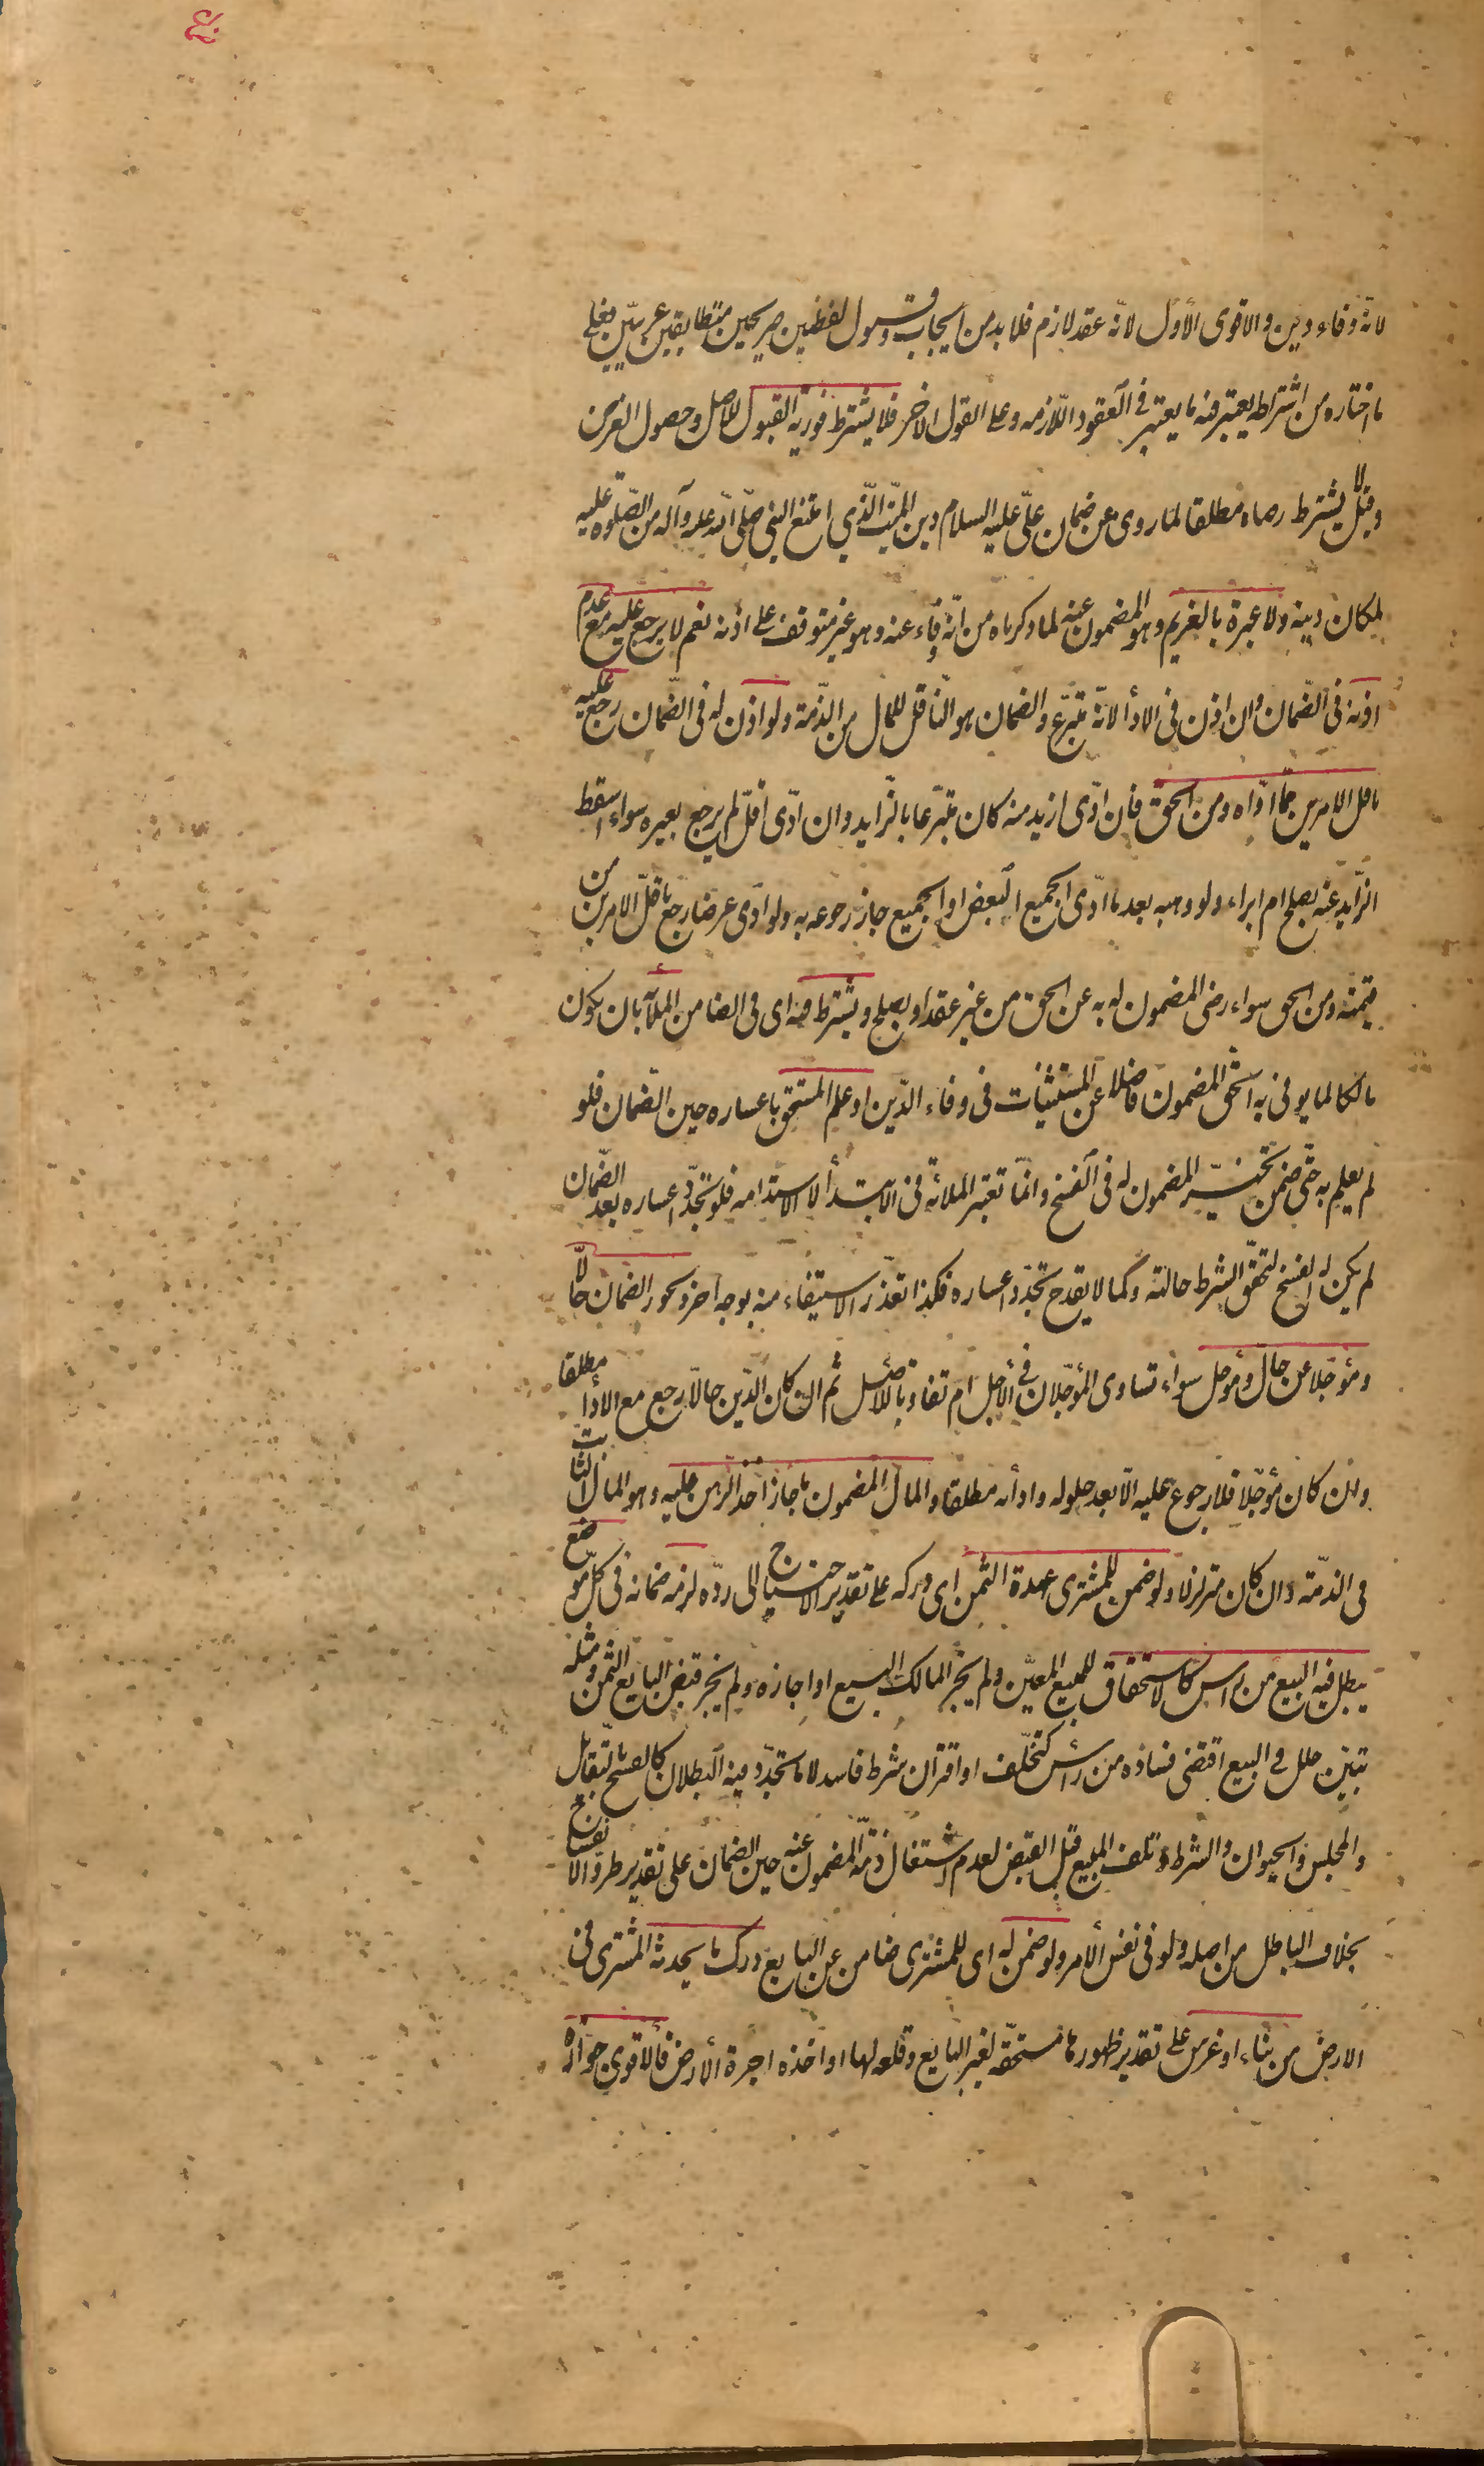 لانّه وفاء دين والاقوى الأول لانّه عقد لازم فلا بد من ايجاب وقبول لفظين صريحين متطابقين عربيّين فعلى
ما اختاره من اشتراطه يعتبر فيه ما يعتبر في العقود اللّازمه وعلى القول الاخر فلا يشترط فوريّة القبول للاصل وحصول الغرض
وقيل لا يشترط رضاه مطلقا لما روى من ضمان علىّ عليه السلام دين الميّت الّذي امتنع النبي صلّى الله عليه وآله من الصّلوة عليه
لمكان دينه ولا عبرة بالغريم وهو المضمون عنه لما ذكرناه من انّه وفاء عنه وهو غير متوقف على اذنه نعم لا يرجع عليه مع عدم
اذنه في الضّمان وان اذن في الاداء لانّه متبرّع والضمان هو النّاقل للمال من الذّمة ولو اذن له في الضّمان رجع عليه
باقل الامرين ممّا ادّاه ومن الحق فان ادّى ازيد منه كان متبرّعا بالزّايد وان ادّى اقلّ لم يرجع بغيره سواء اسقط
الزّايد عنه بصلح ام ابراء ولو وهبه بعد ما ادّى الجميع البعض او الجميع جاز رجوعه به ولو ادّى عرضا رجع باقلّ الامرين من
قيمته ومن الحق سواء رضى المضمون له به عن الحق من غير عقد او بصلح ويشترط فيه اى في الضامن الملأة بان يكون
مالكا لما يوفى به الحق المضمون فاضلا عن المستثنيات في وفاء الدّين او علم المستحق باعساره حين الضّمان فلو
لم يعلم به حتّى ضمن تخيّر المضمون له في الفسخ وانّما تعتبر الملائة في الابتدأ لا الاستدامه فلو تجدّد اعساره بعد الضّمان
لم يكن له الفسخ لتحقّق الشرط حالته وكما لا يقدح تجدّد اعساره فكذا تعذّر الاستيفاء منه بوجه اخر ويجوز الضمان حالّا
ومؤجّلا عن حالّ ومؤجل سواء تساوى المؤجّلان في الأجل ام تفاوتا للاصل ثم ان كان الدّين حالّا رجع مع الاداء مطلقا
وان كان مؤجّلا فلا رجوع عليه الّا بعد حلوله وادأئه مطلقا والمال المضمون ما جاز اخذ الرّهن عليه وهو المال الثابت
في الذمّة وان كان متزلزلا ولو ضمن للمشترى عهدة الثمن اى دركه على تقدير الاحتياج الى ردّه لزمه ضمانه في كلّ موضع
يبطل فيه البيع من رأس كالاستحقاق للمبيع المعيّن ولم يجز المالك البيع او اجازه ولم يجز قبض البايع الثّمن ومثله
تبيّن خلل في البيع اقتضى فساده من رأس كتخلّف او اقتران شرط فاسد لا ما تجدّد فيه البطلان كالفسخ بالتّقايل
والمجلس والحيوان والشرط وتلف المبيع قبل القبض لعدم اشتغال ذمّة المضمون عنه حين الضمان على تقدير طروّ الانفساخ
بخلاف الباطل من اصله ولو في نفس الأمر ولو ضمن له اى للمشترى ضامن عن البايع درك ما يحدثه المشترى في
الارض من بناء او غرس على تقدير ظهورها مستحقّه لغير البايع وقلعه لها او اخذه اجرة الأرض فالاقوى جوازه